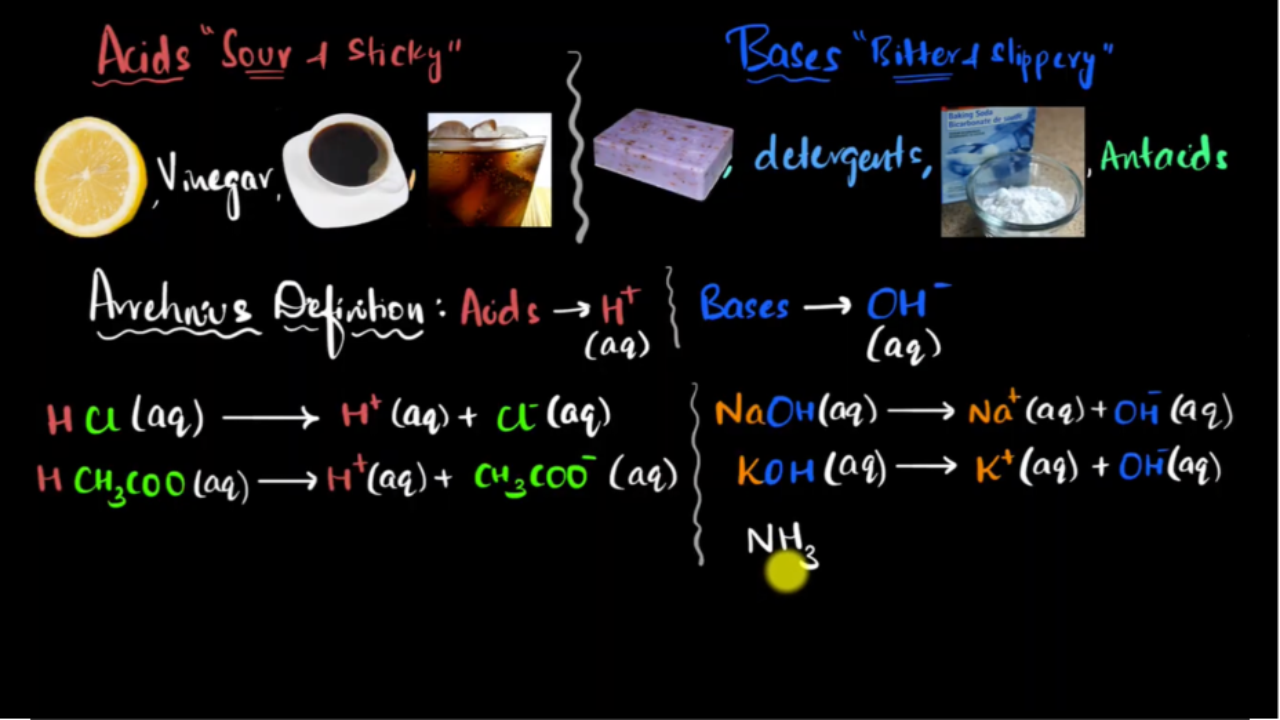 Acids "Sour & Sticky"
Bases "Bitter & Slippery"
, Vinegar, ,
, detergents, Baking Soda Bicarbonate de soude , Antacids
Arrehnius Definition: Acids → H⁺ (aq)
Bases → OH⁻ (aq)
HCl (aq) → H⁺ (aq) + Cl⁻ (aq)
H CH₃COO (aq) → H⁺ (aq) + CH₃COO⁻ (aq)
NaOH (aq) → Na⁺ (aq) + OH⁻ (aq)
KOH (aq) → K⁺ (aq) + OH⁻ (aq)
NH₃